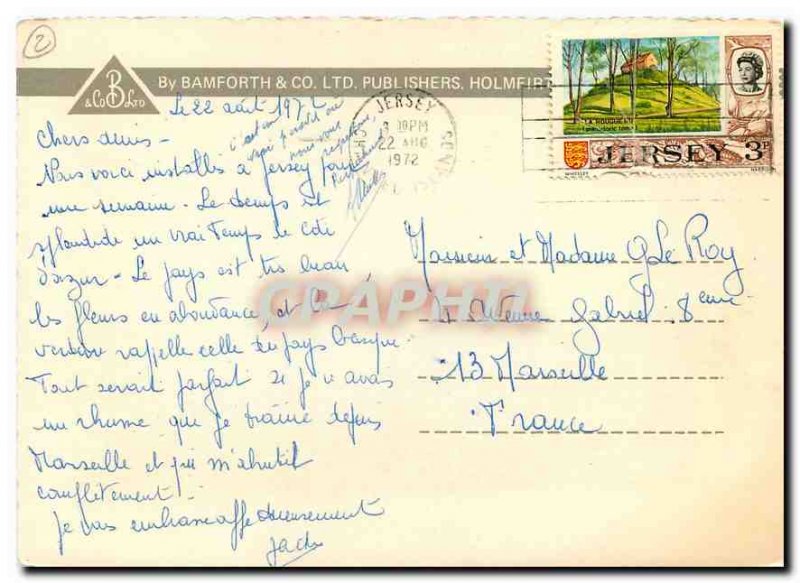 2
B
& Co LTD
By BAMFORTH & CO. LTD. PUBLISHERS, HOLMFIR
Le 22 août 1972
Chers amis -
Nous voici installés à Jersey pour
une semaine - Le temps est
splendide un vrai temps de Côte
d'azur - Le pays est très beau
les fleurs en abondance, et la
verdure rappelle celle du pays basque
Tout serait parfait si je n'avais
un rhume que je traîne depuis
Marseille et qui m'abrutit
complètement.
Je vous embrasse affectueusement
c'est un
vrai paradis
nous vous
JERSEY
3 30PM
22 AUG
1972
LA HOUGUE BIE
JERSEY 3P
Monsieur et Madame G Le Roy
8 Avenue Gabriel
13 Marseille 8eme
France
CPAPHIL